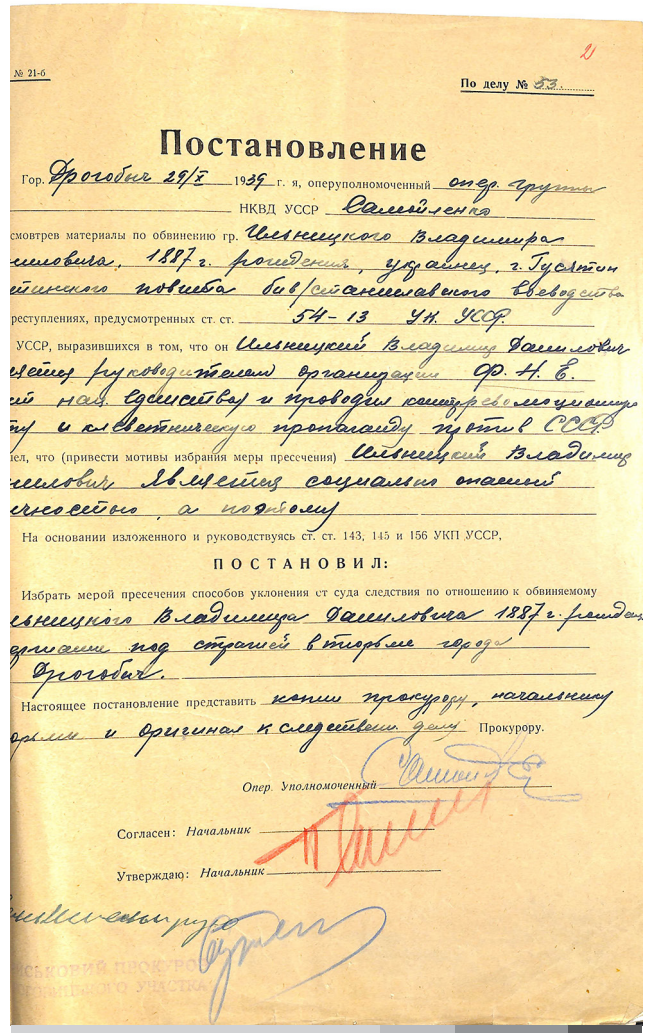 2
№ 21-б
По делу № 53.
Постановление
Гор. Дрогобыч 29/X 1939 г. я, оперуполномоченный опер. группы
НКВД УССР Самойленко
смотрев материалы по обвинению гр. Ильницкого Владимира
ниловича, 1887 г. рождения, украинец, г. Гусятин
тинского повита быв/станиславского воеводства
реступлениях, предусмотренных ст. ст. 54-13 УК УССР.
УССР, выразившихся в том, что он Ильницкий Владимир Данилович
яется руководителем организации Ф. Н. Е.
ий нац. единства) и проводил контрреволюционную
ту и клеветническую пропаганду против СССР.
ел, что (привести мотивы избрания меры пресечения) Ильницкий Владимир
нилович является социально опасной
ичностью, а поэтому
На основании изложенного и руководствуясь ст. ст. 143, 145 и 156 УКП УССР,
ПОСТАНОВИЛ:
Избрать мерой пресечения способов уклонения от суда следствия по отношению к обвиняемому
льницкого Владимира Даниловича 1887 г. рожден
ержании под стражей в тюрьме города
Дрогобыч.
Настоящее постановление представить копии прокурору, начальнику
юрьмы и оригинал к следствен. делу Прокурору.
Опер. Уполномоченный
Согласен: Начальник
Утверждаю: Начальник
ІСЬКОВИЙ ПРОКУРОР
УЧАСТКА